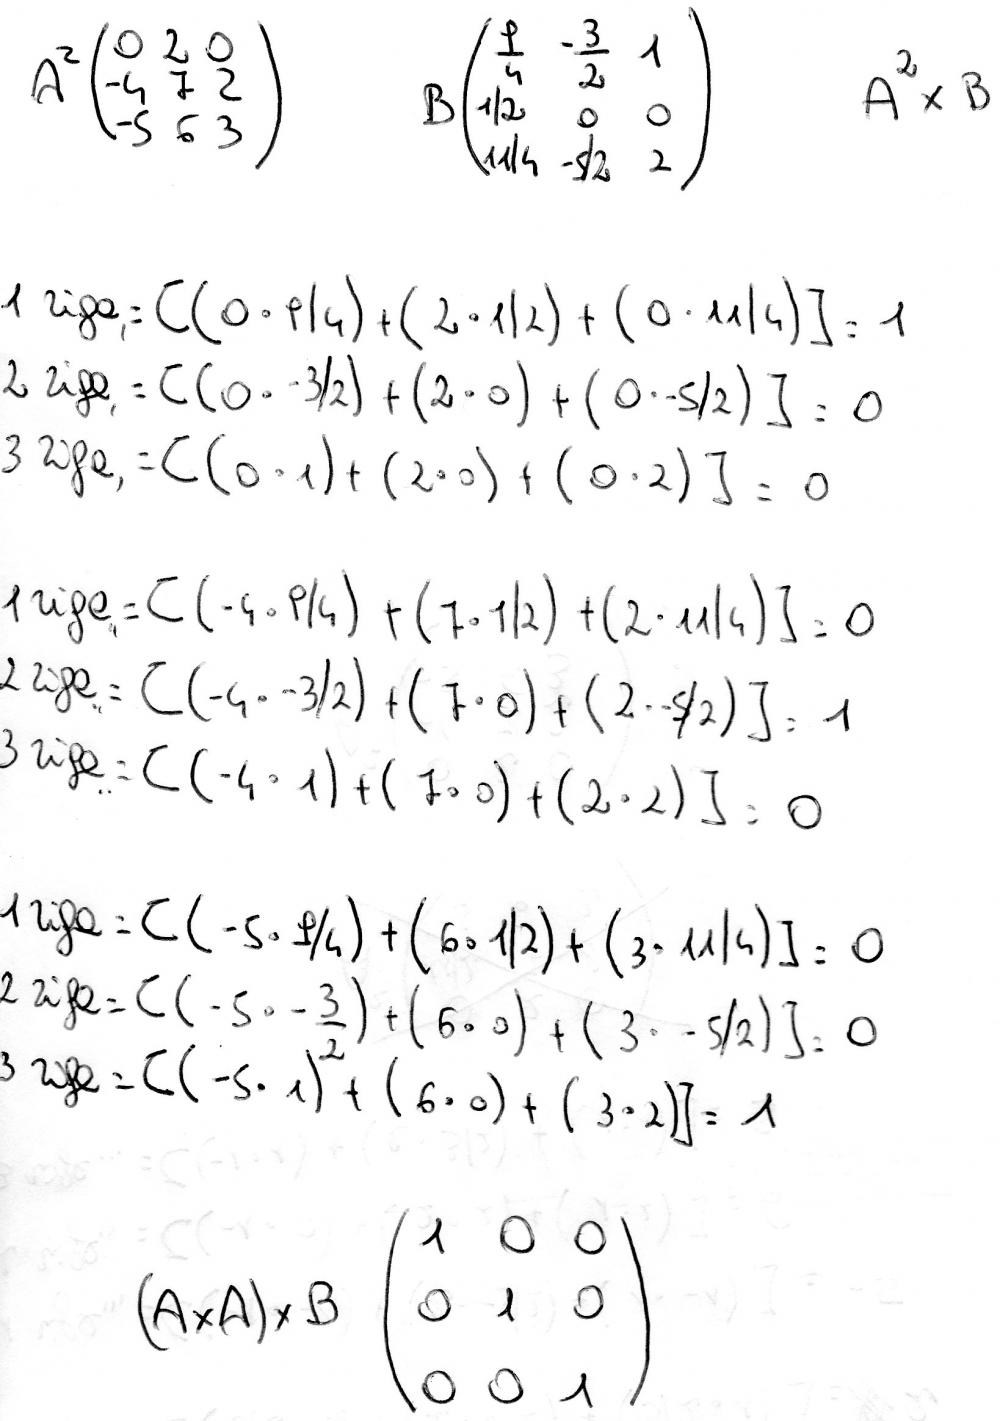 A² (0 2 0
-4 7 2
-5 6 3)
B (9/4 -3/2 1
1/2 0 0
11/4 -5/2 2)
A² × B
1 riga, = [(0 · 9/4) + (2 · 1/2) + (0 · 11/4)] = 1
2 riga, = [(0 · -3/2) + (2 · 0) + (0 · -5/2)] = 0
3 riga, = [(0 · 1) + (2 · 0) + (0 · 2)] = 0
1 riga,, = [(-4 · 9/4) + (7 · 1/2) + (2 · 11/4)] = 0
2 riga,, = [(-4 · -3/2) + (7 · 0) + (2 · -5/2)] = 1
3 riga,, = [(-4 · 1) + (7 · 0) + (2 · 2)] = 0
1 riga = [(-5 · 9/4) + (6 · 1/2) + (3 · 11/4)] = 0
2 riga = [(-5 · -3/2) + (6 · 0) + (3 · -5/2)] = 0
3 riga = [(-5 · 1) + (6 · 0) + (3 · 2)] = 1
(A×A)×B (1 0 0
0 1 0
0 0 1)